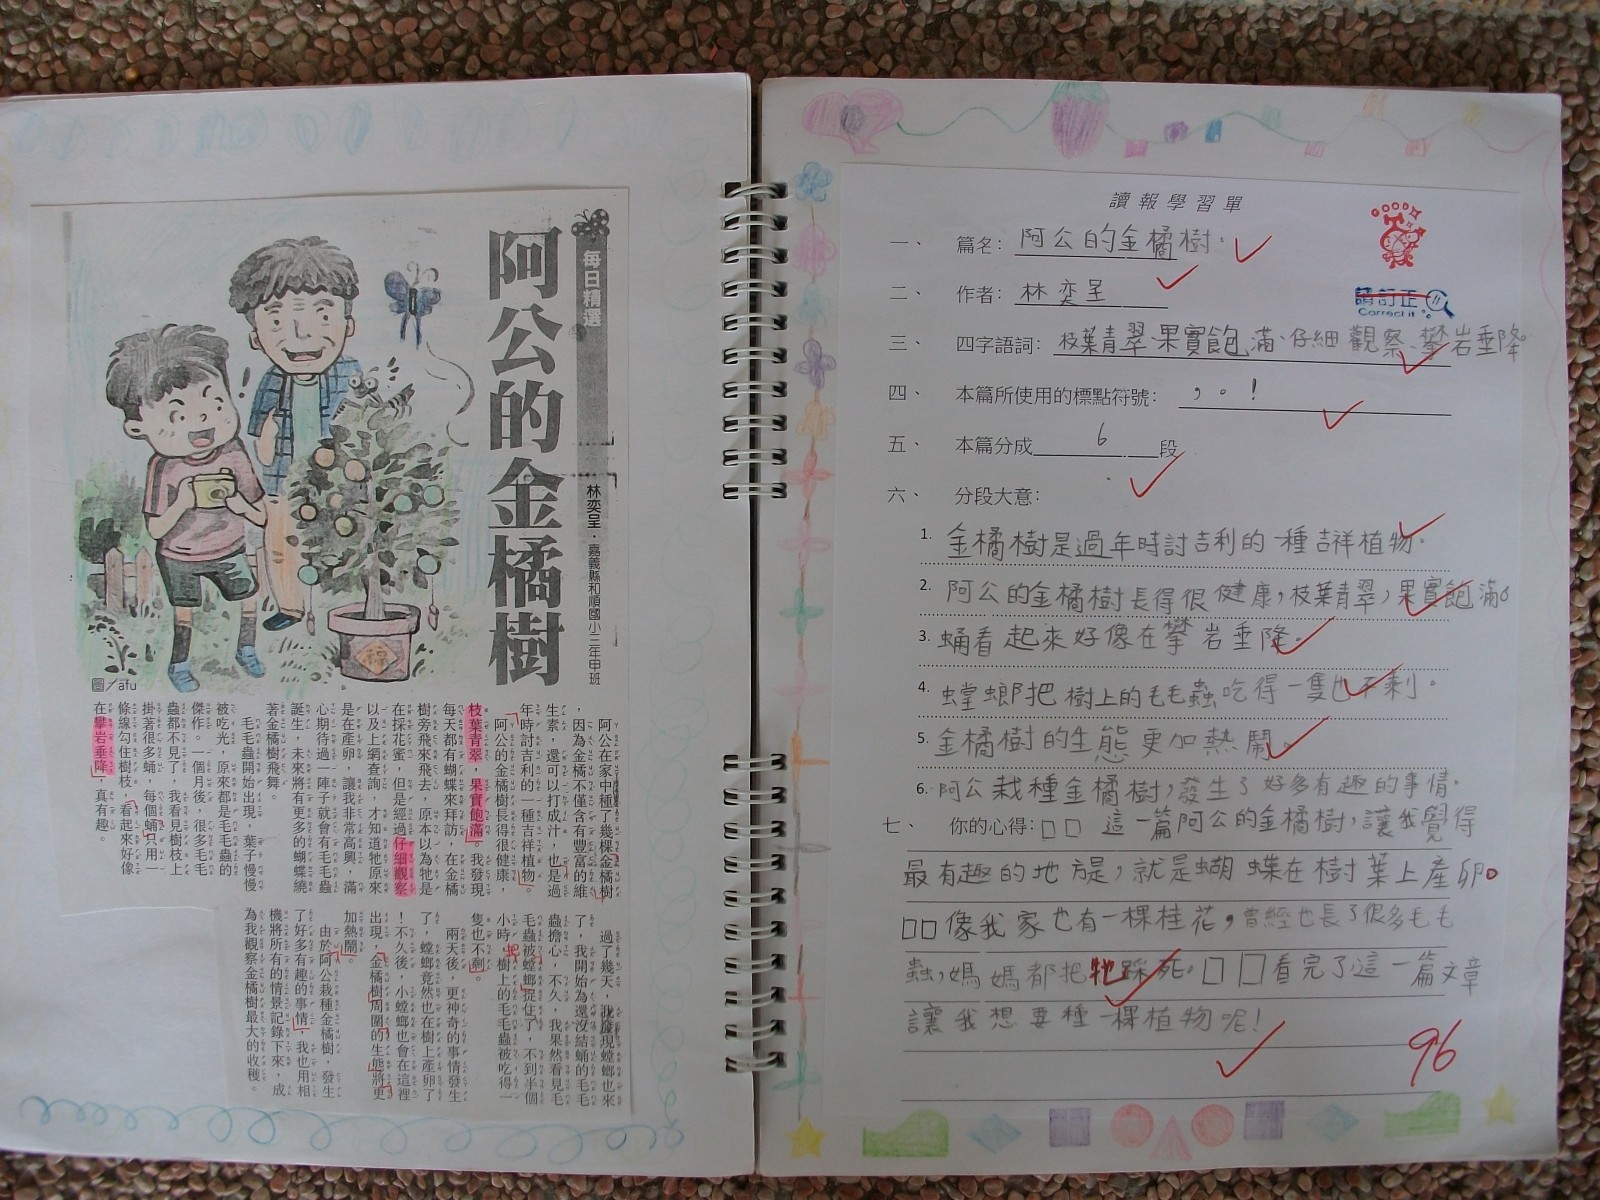 每日精選
阿公的金橘樹
林奕呈·嘉義縣和順國小三年甲班
圖／afu
福
阿公在家中種了幾棵金橘樹
，因為金橘不僅含有豐富的維
生素，還可以打成汁，也是過
年時討吉利的一種吉祥植物。
阿公的金橘樹長得很健康，
枝葉青翠，果實飽滿。我發現
每天都有蝴蝶來拜訪，在金橘
樹旁飛來飛去，原本以為牠是
在採花蜜，但是經過仔細觀察
以及上網查詢，才知道牠原來
是在產卵，讓我非常高興，滿
心期待過一陣子就會有毛毛蟲
誕生，未來將有更多的蝴蝶繞
著金橘樹飛舞。
毛毛蟲開始出現，葉子慢慢
被吃光，原來都是毛毛蟲的
傑作。一個月後，很多毛毛
蟲都不見了，我看見樹枝上
掛著很多蛹，每個蛹只用一
條線勾住樹枝，看起來好像
在攀岩垂降，真有趣。
過了幾天，我發現螳螂也來
了，我開始為還沒結蛹的毛毛
蟲擔心，不久，我果然看見毛
毛蟲被螳螂捉住了，不到半個
小時，樹上的毛毛蟲被吃得一
隻也不剩。
兩天後，更神奇的事情發生
了，螳螂竟然也在樹上產卵了
！不久後，小螳螂也會在這裡
出現，金橘樹周圍的生態將更
加熱鬧。
由於阿公栽種金橘樹，發生
了好多有趣的事情，我也用相
機將所有的情景記錄下來，成
為我觀察金橘樹最大的收穫。
讀報學習單
一、 篇名：阿公的金橘樹。
二、 作者：林奕呈
請訂正
Correct it
三、 四字語詞：枝葉青翠、果實飽滿、仔細觀察、攀岩垂降
四、 本篇所使用的標點符號：，。！
五、 本篇分成6段
六、 分段大意：
1. 金橘樹是過年時討吉利的一種吉祥植物。
2. 阿公的金橘樹長得很健康，枝葉青翠，果實飽滿。
3. 蛹看起來好像在攀岩垂降。
4. 螳螂把樹上的毛毛蟲吃得一隻也不剩。
5. 金橘樹的生態更加熱鬧。
6. 阿公栽種金橘樹，發生了好多有趣的事情。
七、 你的心得：□□ 這一篇阿公的金橘樹，讓我覺得
最有趣的地方是，就是蝴蝶在樹葉上產卵。
□□像我家也有一棵桂花，曾經也長了很多毛毛
蟲，媽媽都把牠踩死。□□看完了這一篇文章
讓我想要種一棵植物呢！
96